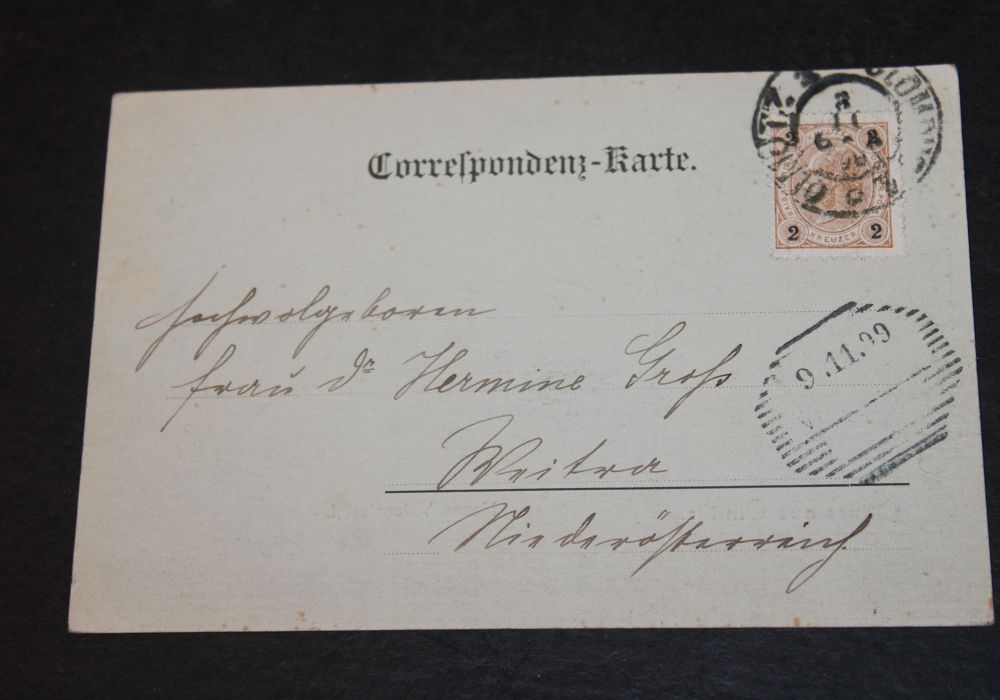 Correspondenz-Karte.
2 2
2 KREUZER 2
9.11.99
Hochwolgeboren
Frau Dr Hermine Groß
Weitra
Niederösterreich